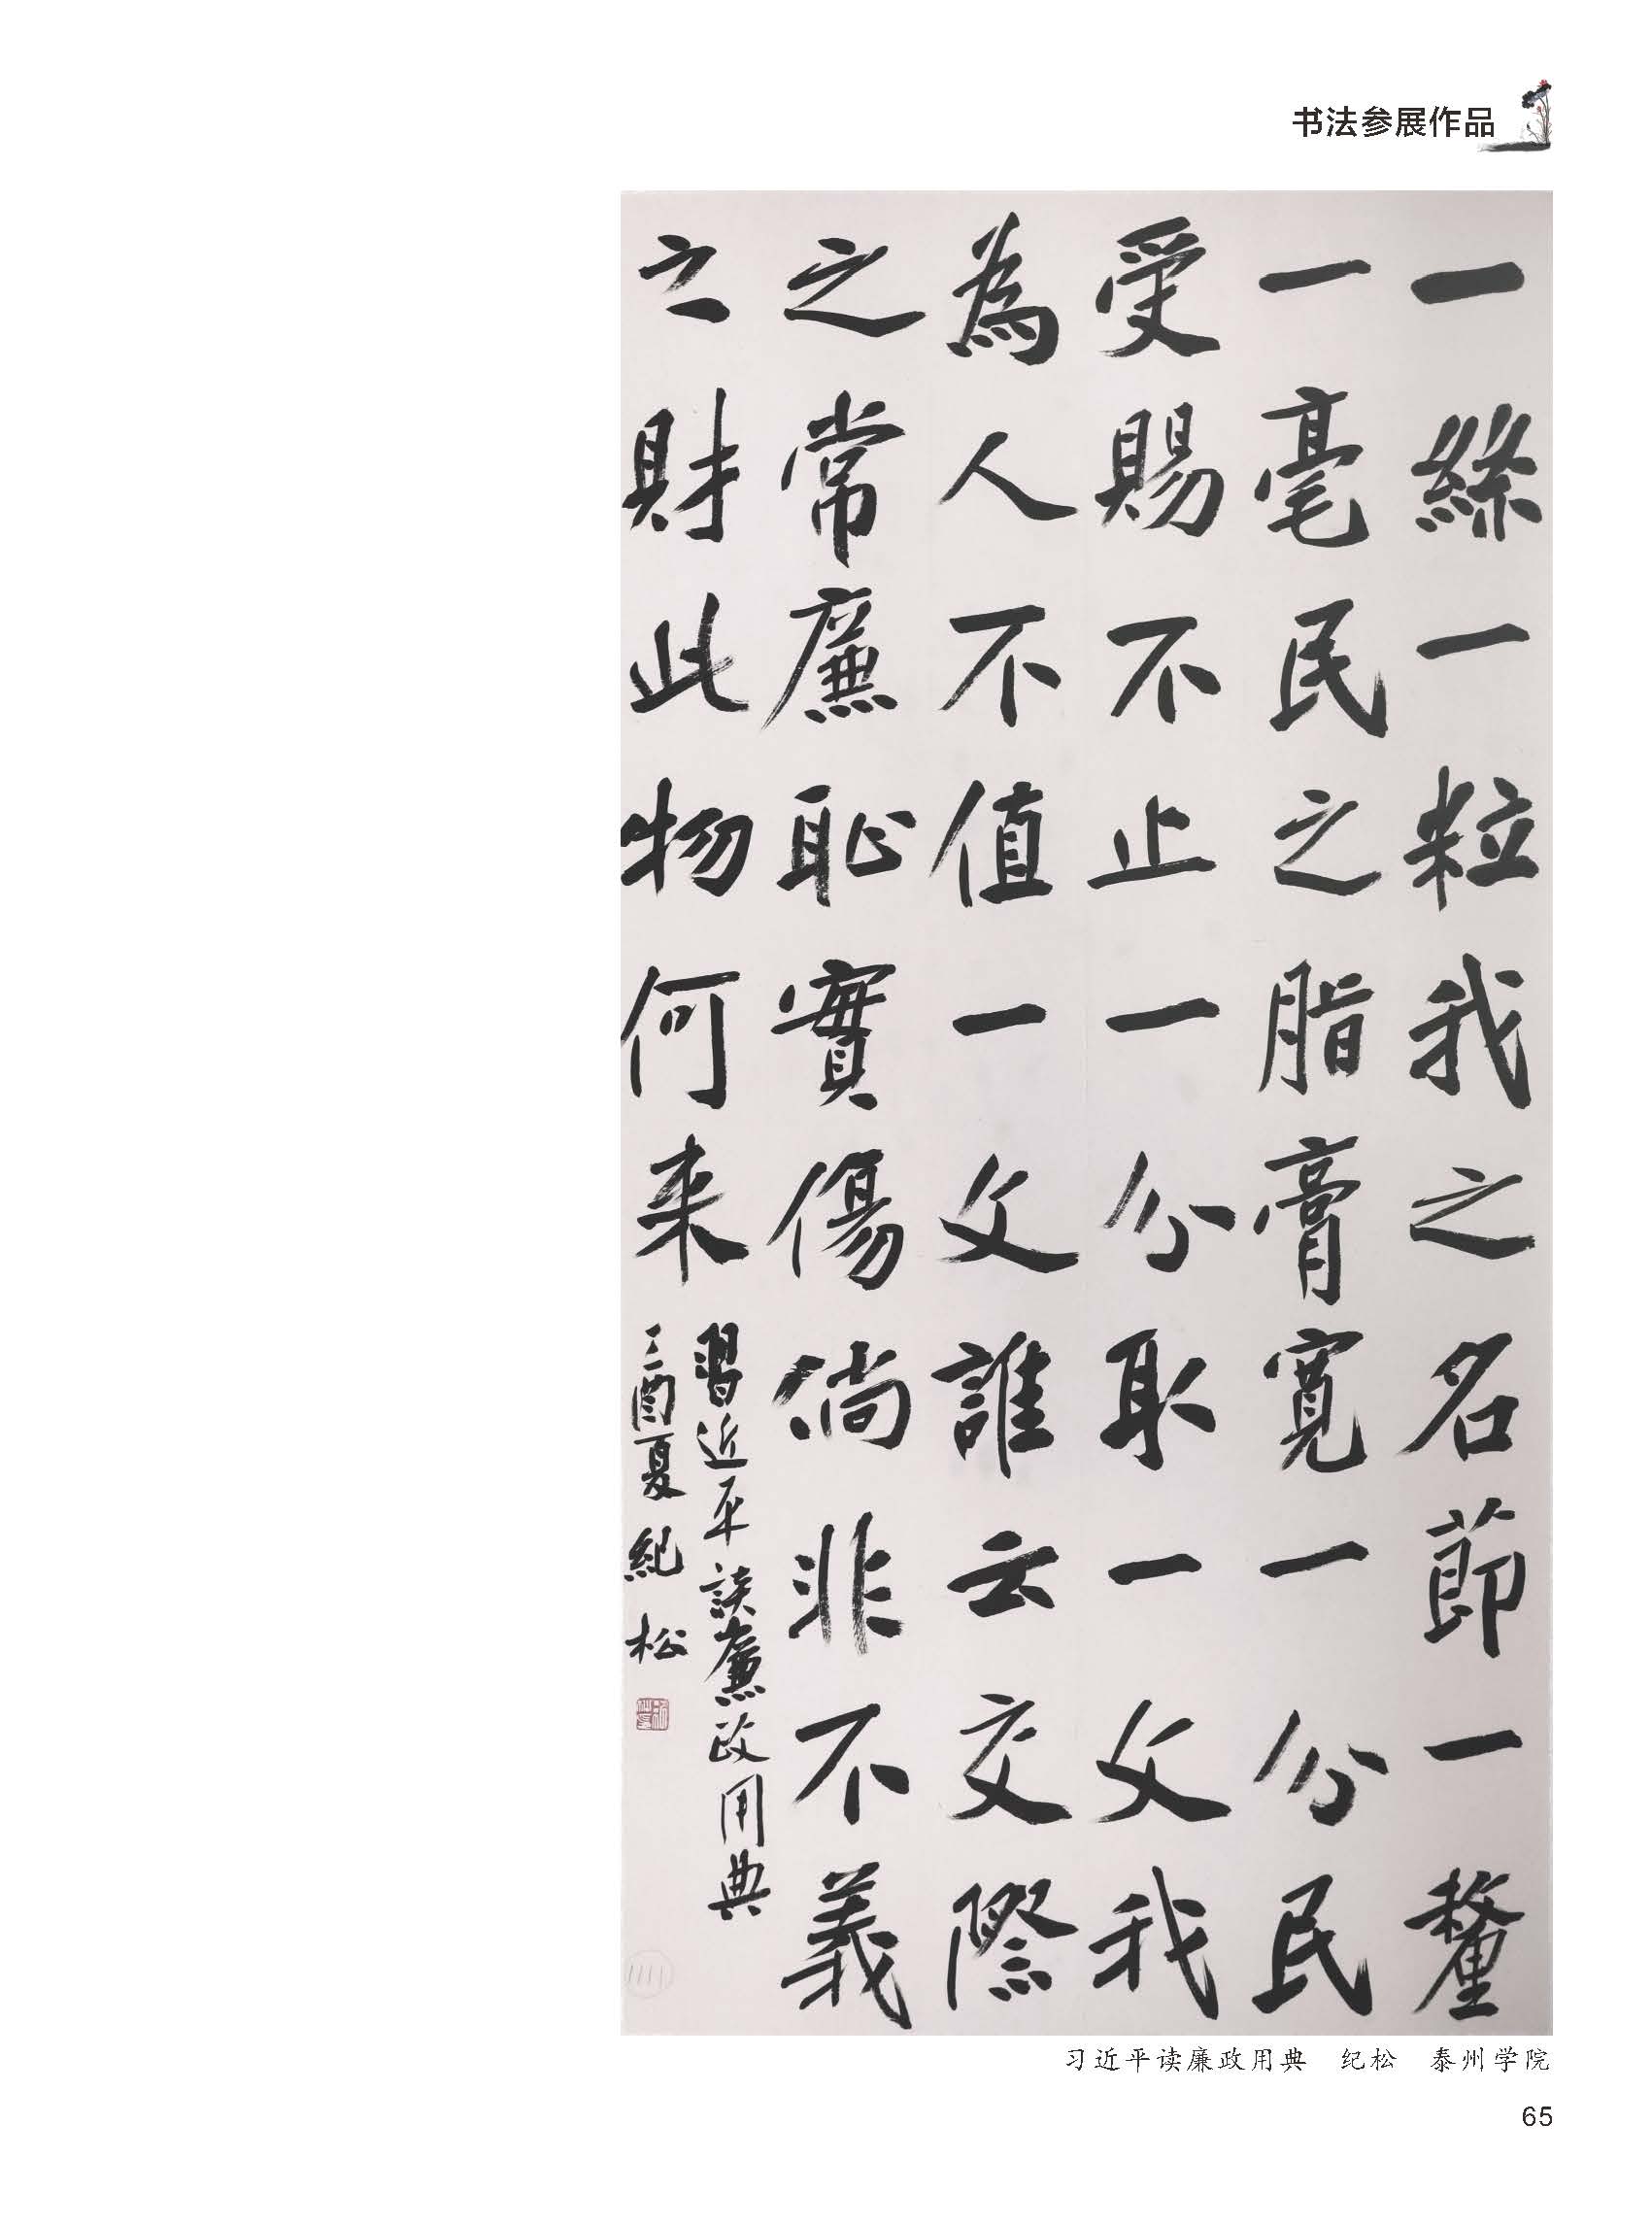 书法参展作品
一絲一粒我之名節一釐
一毫民之脂膏寬一分民
受賜不止一分取一文我
為人不值一文誰云交際
之常廉恥實傷倘非不義
之財此物何来
習近平談廉政用典
丁酉夏 紀松
习近平读廉政用典 纪松 泰州学院
65